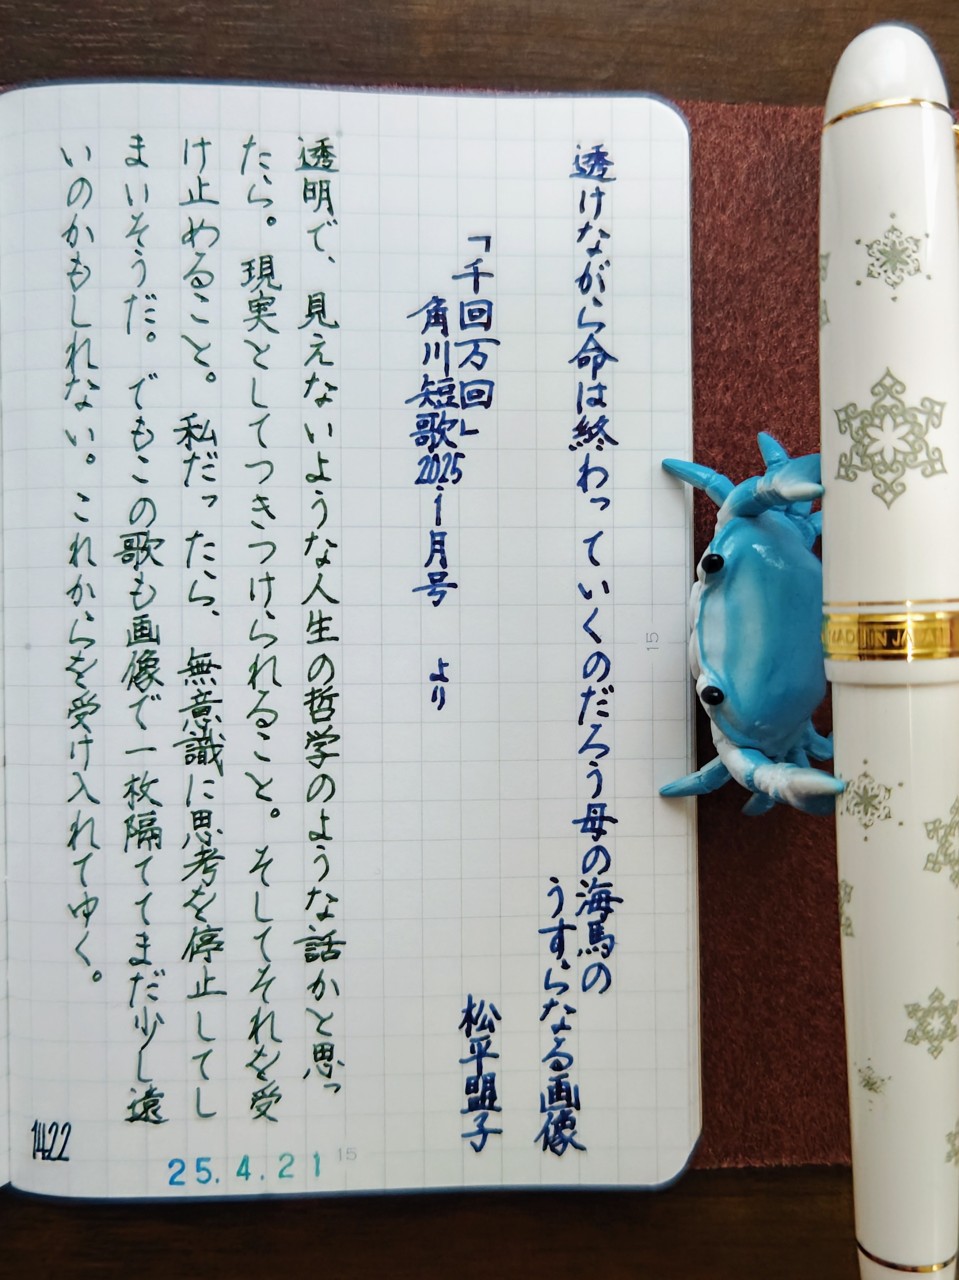 透けながら命は終わっていくのだろう母の海馬の
うすらなる画像
松平盟子
「千回万回」
角川短歌2025年1月号 より
透明で、見えないような人生の哲学のような話かと思っ
たら。現実としてつきつけられること。そしてそれを受
け止めること。私だったら、無意識に思考を停止してし
まいそうだ。でもこの歌も画像で一枚隔ててまだ少し遠
いのかもしれない。これからを受け入れてゆく。
1422
25.4.21
15
15
MADE IN JAPAN